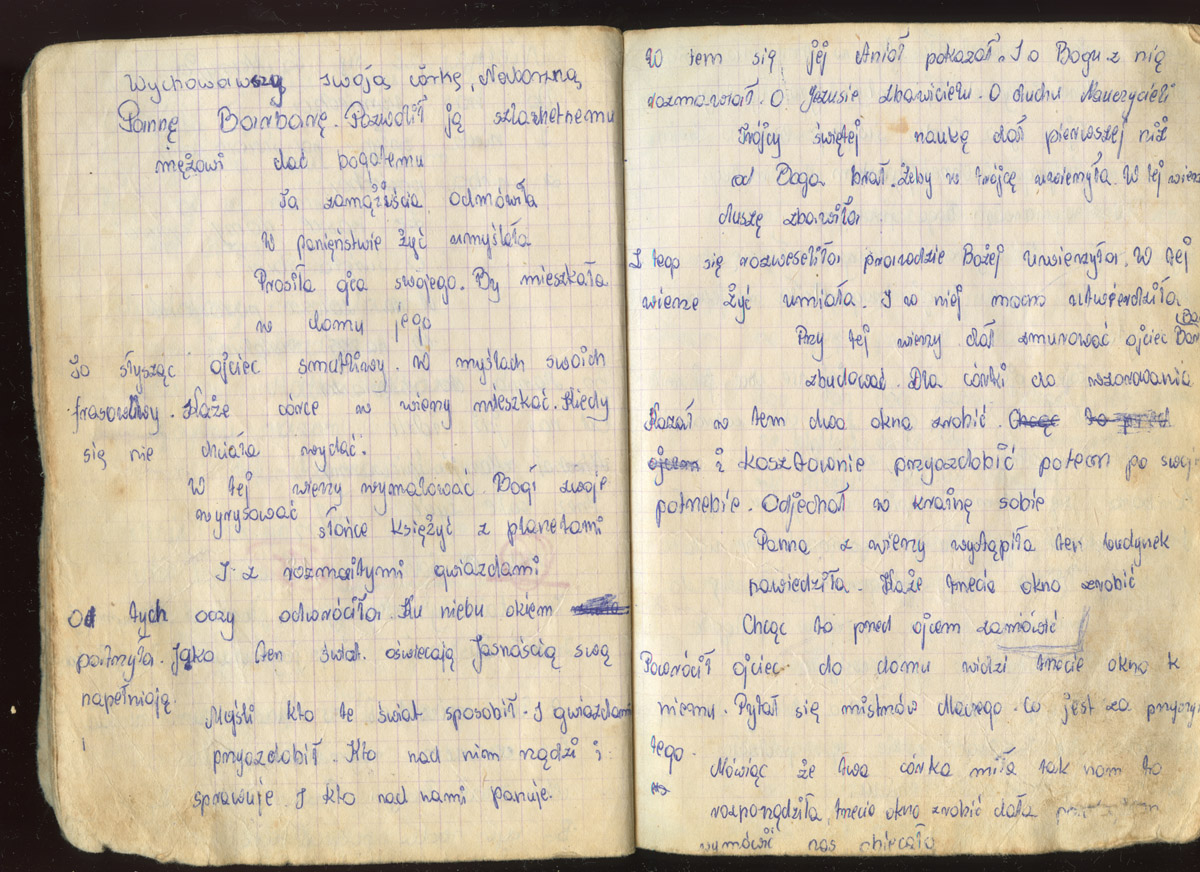 Wychowawszy swoją córkę, Nadobrzną
Pannę Barbarę. Pozwolił ją szlachetnemu
mężowi dać bogatemu
Ta zamążścia odmówiła
W panięństwie żyć umyślała
Prosiła ojca swojego. By mieszkała
w domu jego
To słysząc ojciec smutliwy. W myślach swoich
frasowliwy. Każe córce w wieny mieszkać. Kiedy
się nie chciała wydać.
W tej wierzy wymalować Bogi swoje
wyrysować
słońce księżyć z planetami
I z rozmaitymi gwiazdami
Od tych oczy odwróciła. Ku niebu okiem
patrzyła. Jako ten świat oświecają Jasnością swą
napełniają.
Myśli kto te świat sposobił. I gwiazdami
przyozdobił. Kto nad niem rządzi i
sprawuje. I kto nad nami panuje.
W tem się jej Anioł pokazał. I o Bogu z nią
rozmawiał. O Jezusie zbawicielu. O duchu Nauczycieli
Trójcy świętej naukę dał pierwszej niż
od Boga brał. Żeby w trójcę uwierzyła. W tej wierze
duszę zbawiła
Z tego się rozweseliła prawdzie Bożej uwierzyła. W tej
wierze żyć umiała. I w niej mocno utwierdziła
Przy tej wierzy dał zmurować ojciec
zbudować. Dla córki do wzorowania
Kazał w tem dwa okna zrobić. Chcąc to przed
ojcem i kosztownie przyozdobić potem po swoj
potrzebie. Odjechał w krainę sobie
Panna z wierzy wystąpiła ten budynek
nawiedziła. Każe trzecie okno zrobić
Chcąc to przed ojcem zamówić
Powrócił ojciec do domu widzi trzecie okno k
niemu. Pytał się mistrzów dlaczego. Co jest za przyczy
tego.
Mówiąc że twa córka miła tak nam to
rozporządziła, trzecie okno zrobić dała
wymówić nas chciała